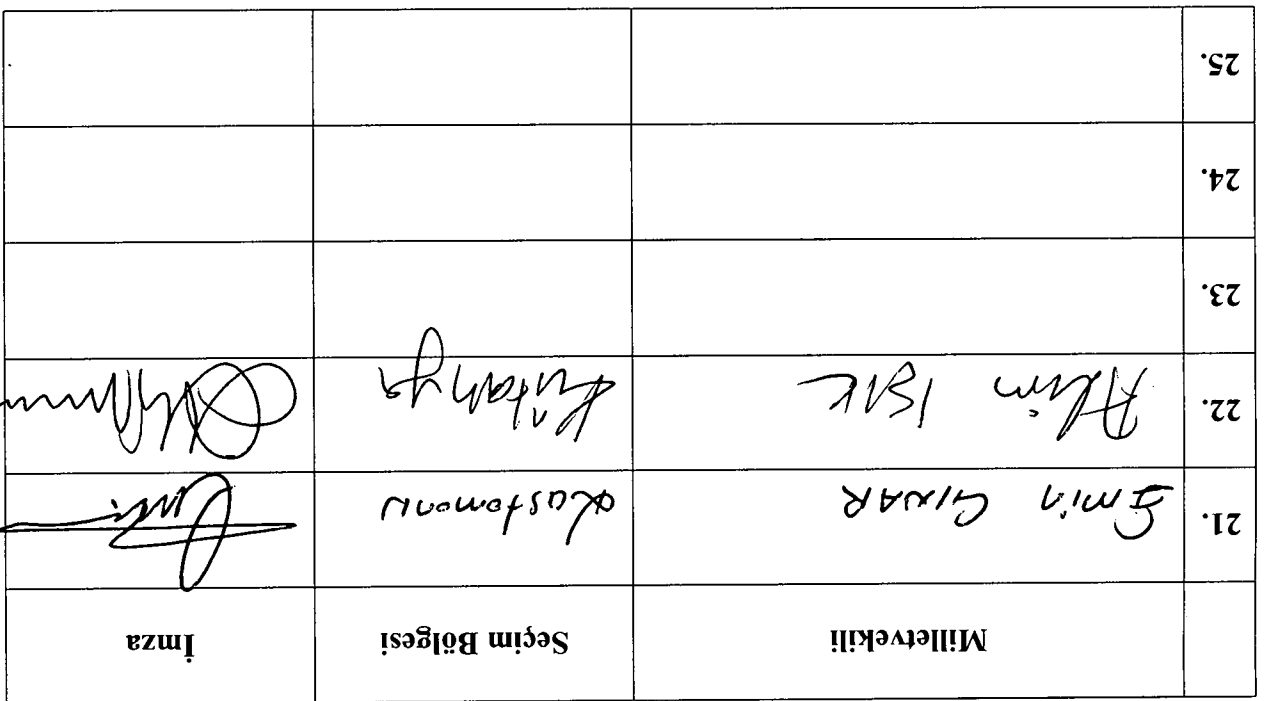 Milletvekili Seçim Bölgesi İmza
21. Emin ÇINAR Kastamonu
22. Alim IŞIK Kütahya
23.
24.
25.